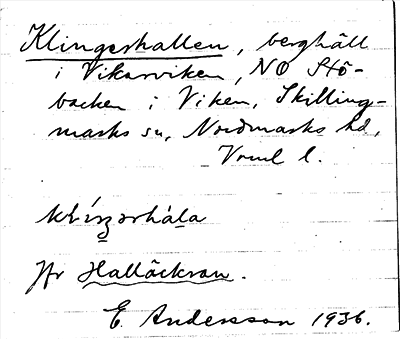 Klingerhallen, berghäll
i Vikarviken, NO Stö-
backen i Viken, Skilling-
marks sn, Nordmarks hd,
Vrml l.
Jfr Hallåckran.
E. Andersson 1936.